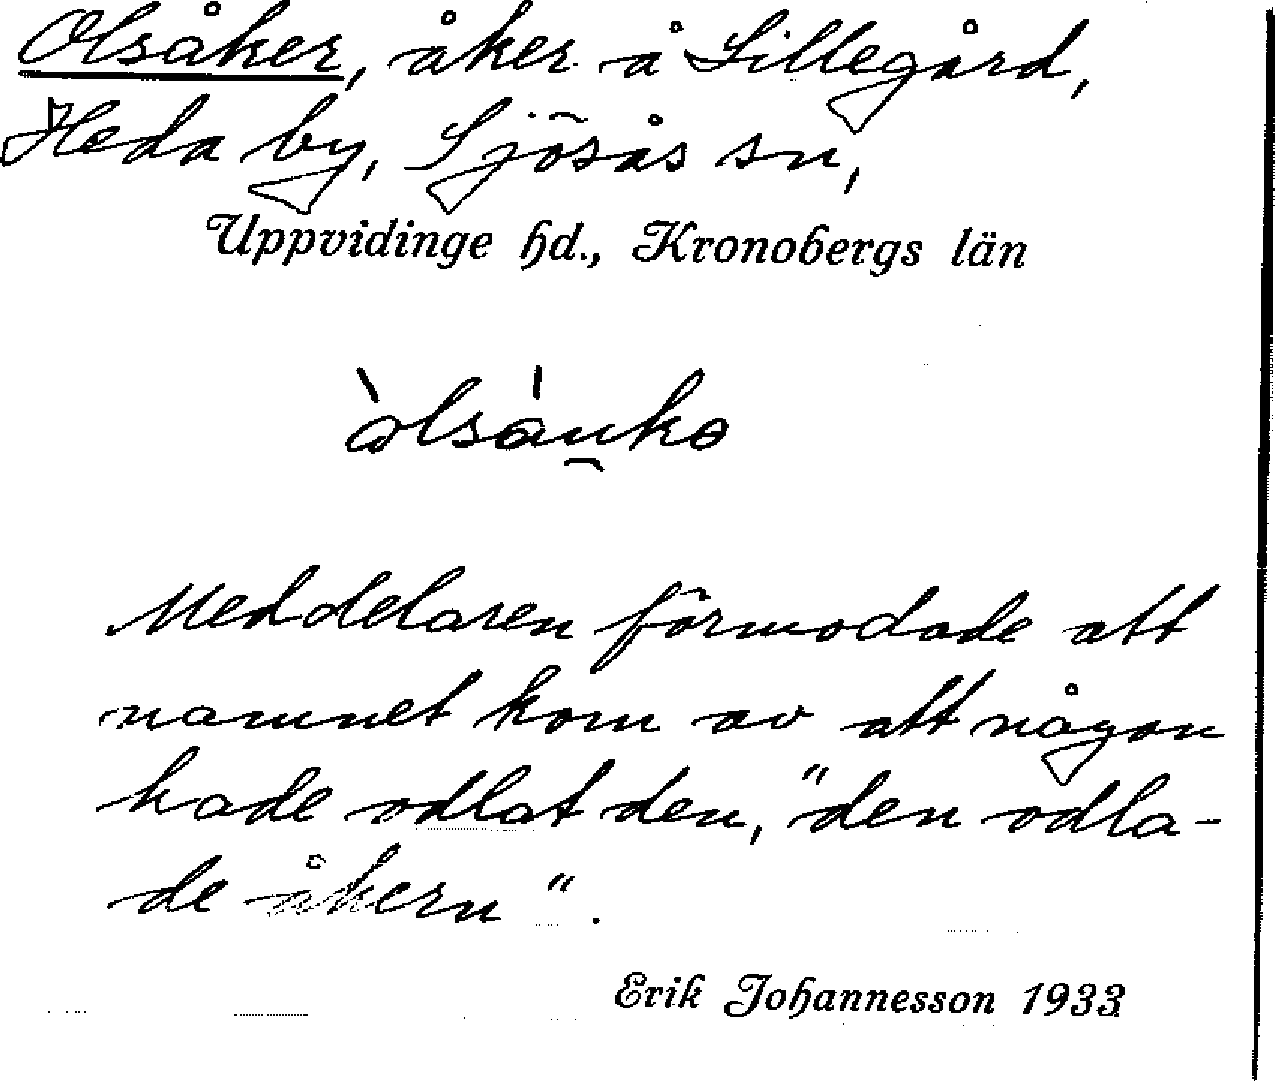 Olsåker, åker å Lillegård,
Heda by, Sjösås sn,
Uppvidinge hd., Kronobergs län
òlsàu̯kə
Meddelaren förmodade att
namnet kom av att någon
hade odlat den, "den odla-
de åkern".
Erik Johannesson 1933